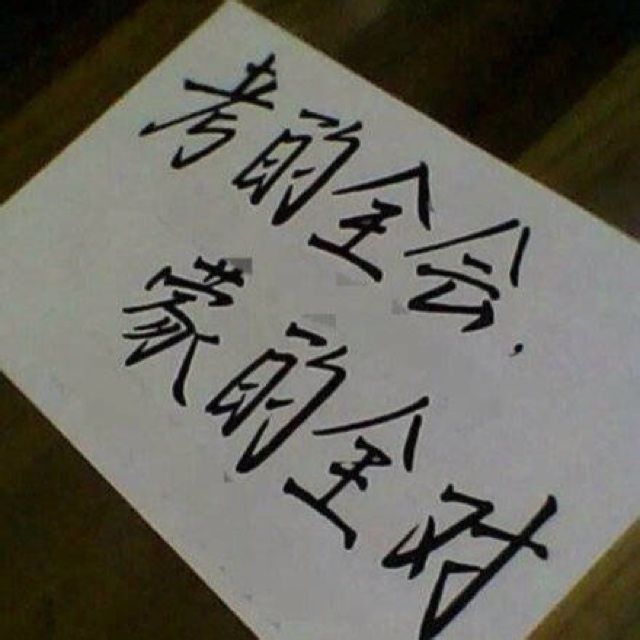 考的全会，
蒙的全对